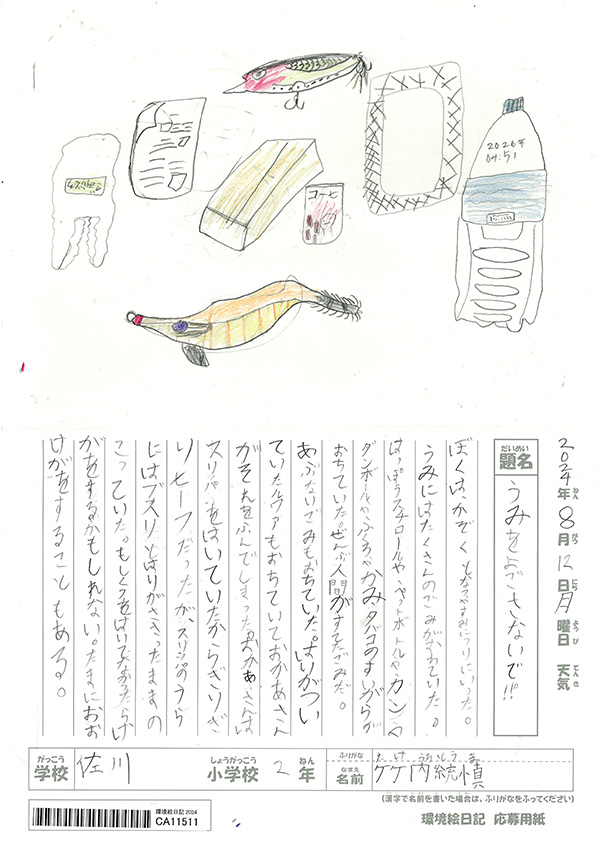 コーヒ
2026年
04.51
2024年8月12日月曜日 天気
ねん がつ にち ようび てんき
だいめい
題名
うみをよごさないで!!
ぼくは、かぞくとなつやすみにつりにいった。
うみにはたくさんのごみがすてられていた。
はっぽうスチロールや、ペットボトルや、カン、
ダンボールや、ふくろやかみ、タバコのすいがらが
おちていた。ぜんぶ人間がすてたごみだ。
あぶないごみもおちていた。はりがつい
ていたルアーもおちていておかあさん
がそれをふんでしまった。おかあさんは
スリッパをはいていたからぎりぎ
りセーフだったが、スリッパのうら
にはブスリとはりがささったままの
こっていた。もしくつをはいてなかったらけ
がをするかもしれない。たまにおお
けがをすることもある。
がっこう
学校
佐川
しょうがっこう
小学校
2
ねん
年
ふりがな
たけ うち とう ま
なまえ
名前
竹内統慎
(漢字で名前を書いた場合は、ふりがなをふってください)
環境絵日記2024
CA11511
環境絵日記 応募用紙